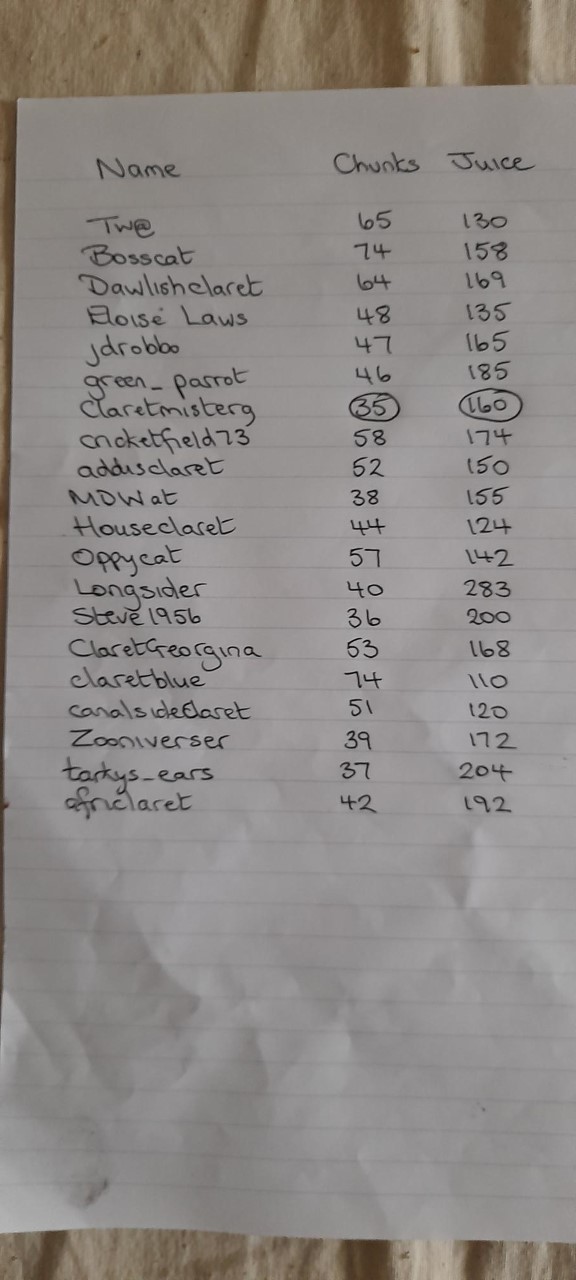 Name Chunks Juice
Tw@ 65 130
Bosscat 74 158
Dawlishclaret 64 169
Eloise Laws 48 135
jdrobbo 47 165
green_parrot 46 185
Claretmisterg 35 160
cricketfield73 58 174
addisclaret 52 150
MDWat 38 155
Houseclaret 44 124
Oppycat 57 142
Longsider 40 283
Steve1956 36 200
ClaretGeorgina 53 168
claretblue 74 110
canalsideClaret 51 120
Zooniverser 39 172
tarkys_ears 37 204
africlaret 42 192